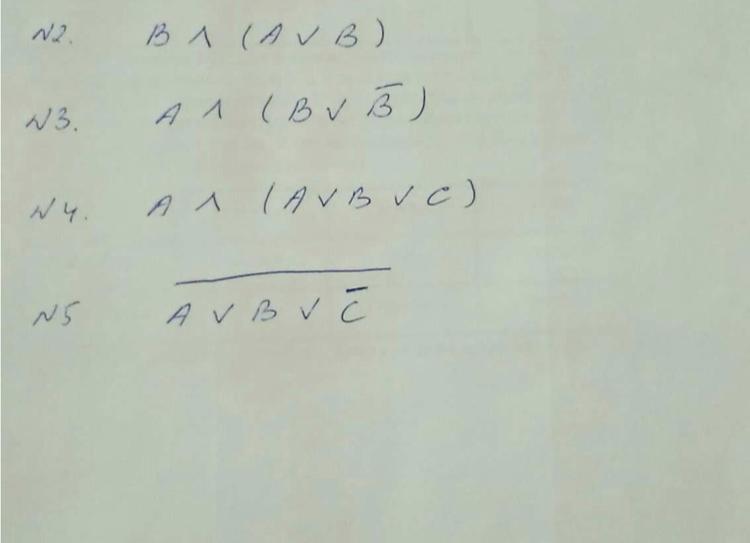 №2. B ∧ (A ∨ B)
№3. A ∧ (B ∨ B̅)
№4. A ∧ (A ∨ B ∨ C)
№5 A̅ ̅∨̅ ̅B̅ ̅∨̅ ̅C̿